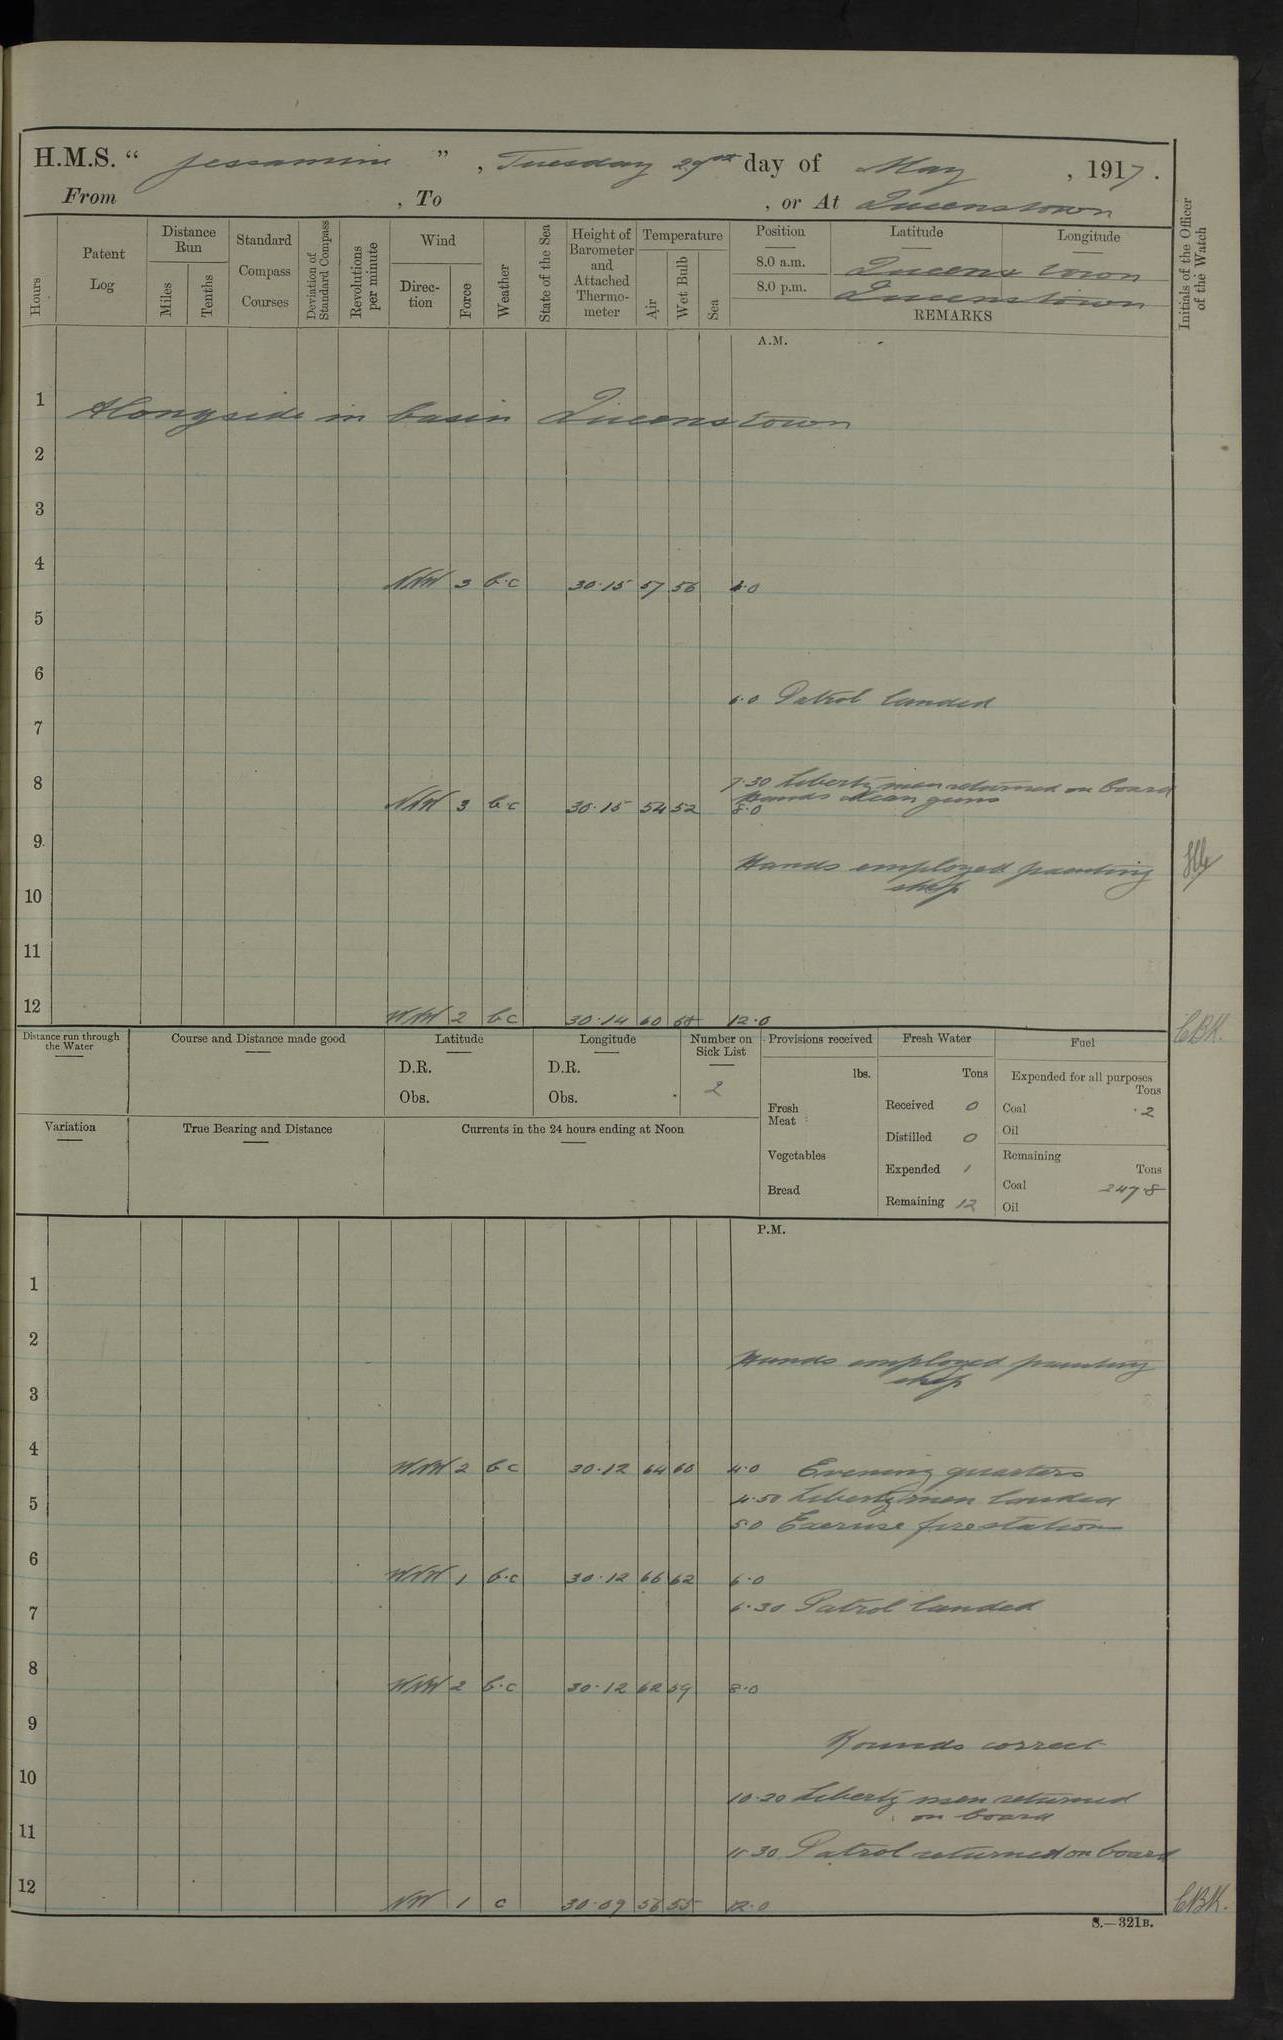 H.M.S. “ Jessamine ” , Tuesday 29th day of May , 1917 .
From , To , or At Queenstown
Hours
Patent Log
Distance Run
Miles
Tenths
Standard Compass Courses
Deviation of Standard Compass
Revolutions per minute
Wind
Direc-tion
Force
Weather
State of the Sea
Height of Barometer and Attached Thermo-meter
Temperature
Air
Wet Bulb
Sea
Position Latitude Longitude
8.0 a.m. Queenstown
8.0 p.m. Queenstown
REMARKS
Initials of the Officer of the Watch
A.M.
1 Alongside in basin Queenstown
2
3
4 NNW 3 b.c 30.15 57 56 4.0
5
6
6.0 Patrol landed
7
7.30 Liberty men returned on board
Hands clean guns
8 NNW 3 b.c 30.15 54 52 8.0
9
Hands employed painting
ship
10
11
12 WNW 2 b.c 30.14 60 58 12.0
CBK.
Distance run through the Water
Course and Distance made good
Latitude
D.R.
Obs.
Longitude
D.R.
Obs.
Number on Sick List
2
Provisions received
lbs.
Fresh Meat
Vegetables
Bread
Fresh Water
Tons
Received 0
Distilled 0
Expended 1
Remaining 12
Fuel
Expended for all purposes
Tons
Coal .2
Oil
Remaining
Tons
Coal 247.8
Oil
Variation
True Bearing and Distance
Currents in the 24 hours ending at Noon
P.M.
1
2
Hands employed painting
ship
3
4 WNW 2 b.c 30.12 64 60 4.0 Evening quarters
4.50 Liberty men landed
5
5.0 Exercise fire stations
6 WNW 1 b.c 30.12 66 62 6.0
6.30 Patrol landed
7
8 WNW 2 b.c 30.12 62 59 8.0
9
Rounds correct
10
10.30 Liberty men returned
on board
11
11.30 Patrol returned on board
12 NW 1 c 30.09 56 55 12.0
CBK.
S.—321B.